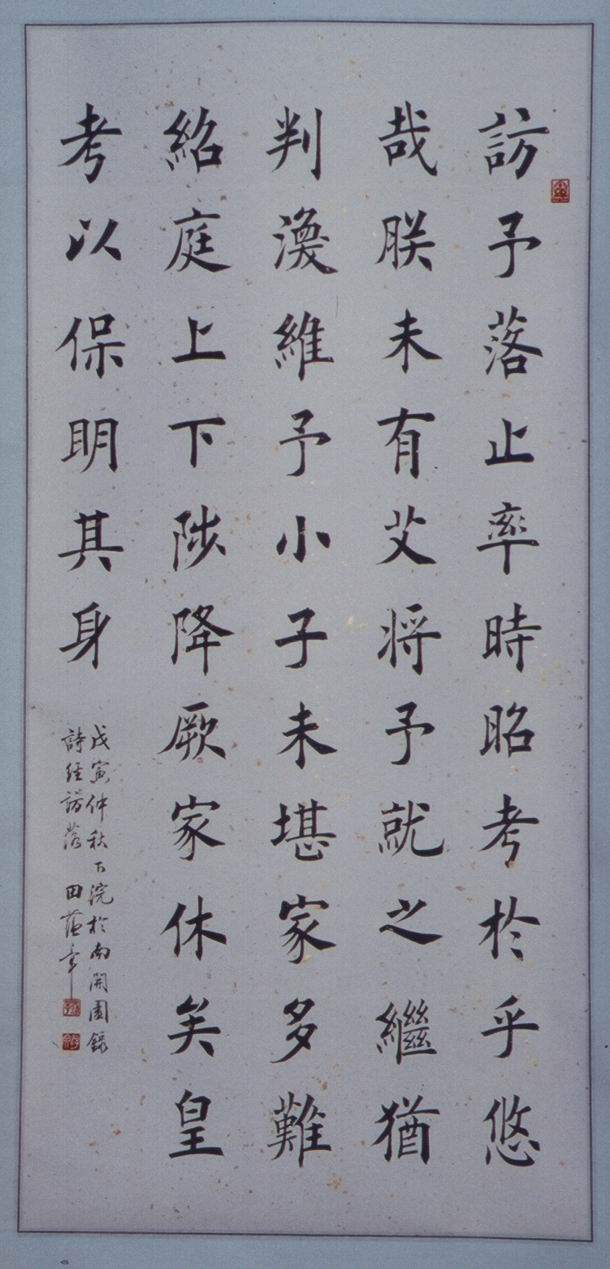 訪予落止率時昭考於乎悠
哉朕未有艾将予就之繼猶
判渙維予小子未堪家多難
紹庭上下陟降厥家休矣皇
考以保明其身
戊寅仲秋下浣於南開園錄
詩經訪落 田蘊章